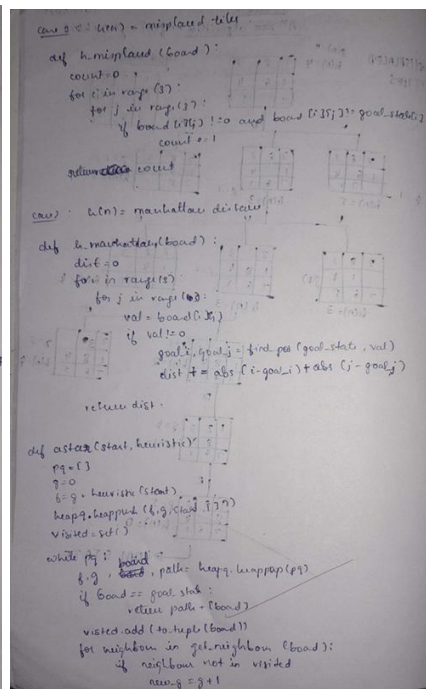 case 2 : h(n) = misplaced tiles
def h_misplaced (board) :
count = 0
for i in range (3) :
for j in range (3) :
if board [i][j] != 0 and board [i][j] != goal_state[i]
count += 1
return count
case : h(n) = manhattan distance
def h_manhattan (board) :
dist = 0
for i in range (3)
for j in range ( ) :
val = board [i][j]
if val != 0
goal_i, goal_j = find_pos (goal_state, val)
dist += abs (i - goal_i) + abs (j - goal_j)
return dist
def astar (start, heuristic)
pq = [ ]
g = 0
f = g + heuristic (start)
heapq.heappush (f, g, start, [ ]))
visited = set ( )
while pq :
f, g, board, path = heapq.heappop (pq)
if board == goal_state :
return path + [board]
visited.add (to_tuple (board))
for neighbour in get_neighbour (board) :
if neighbour not in visited
new_g = g + 1